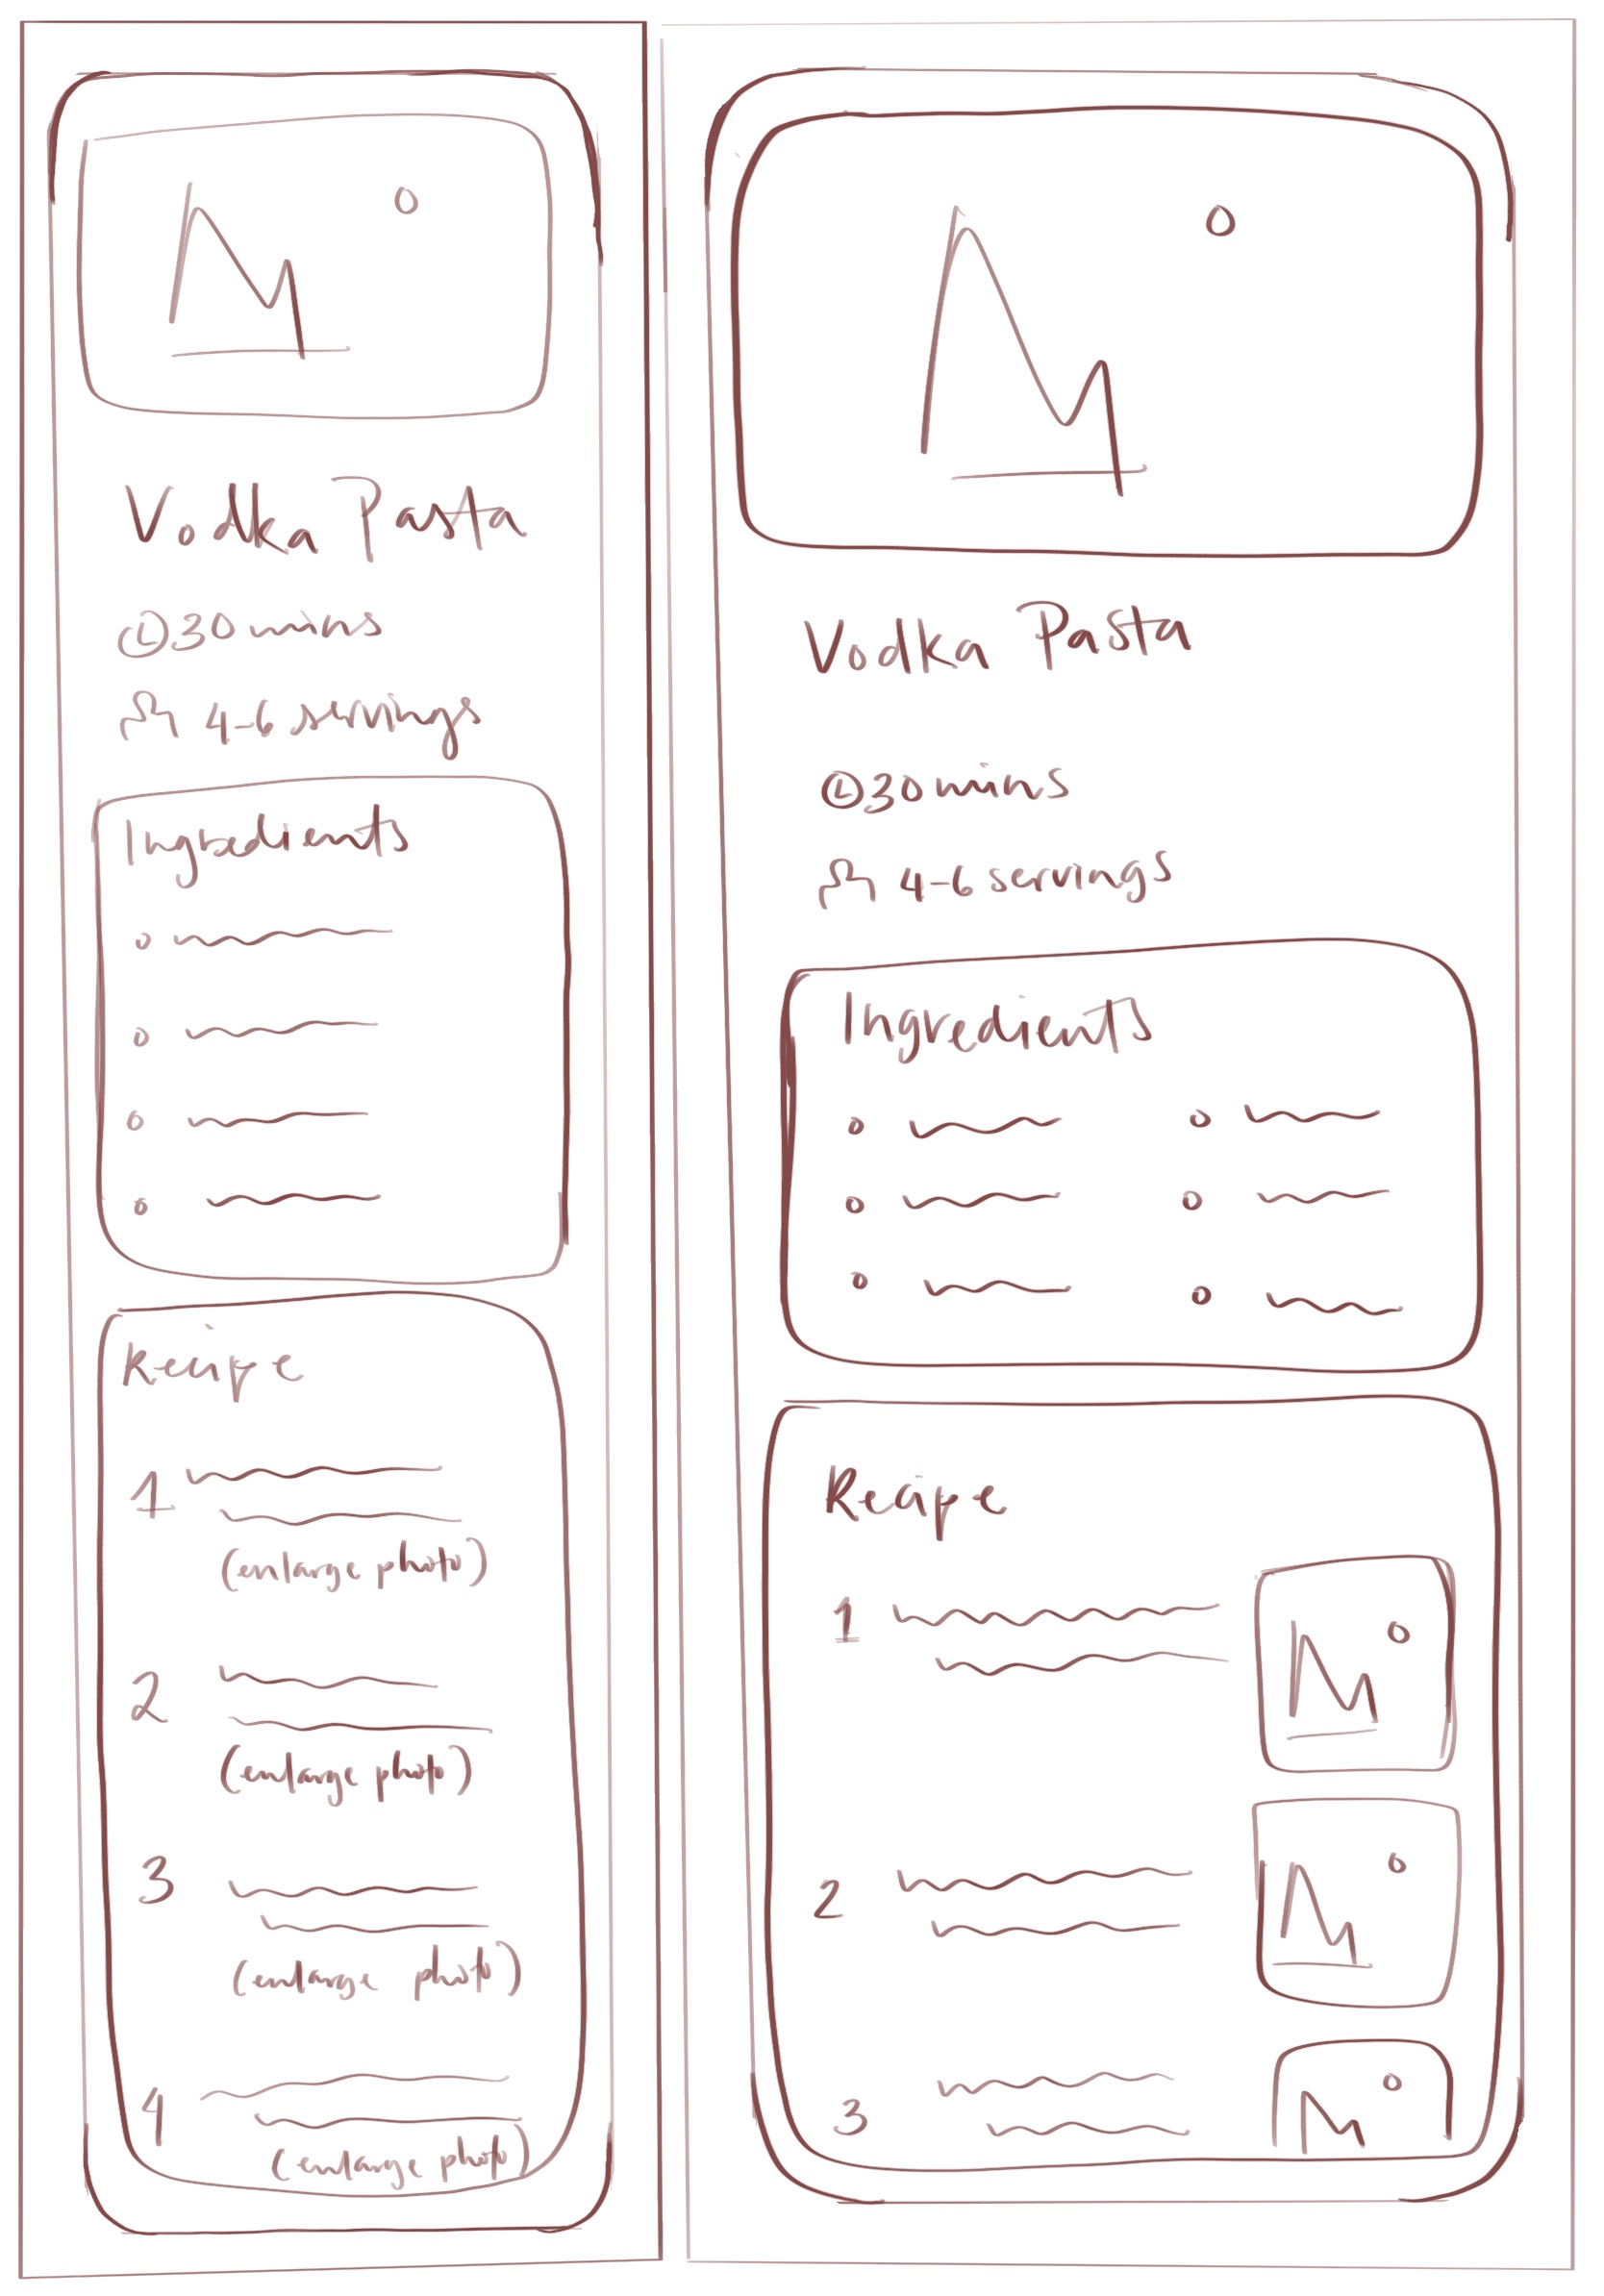 Vodka Pasta
30 mins
4-6 servings
Ingredients
Recipe
1
(enlarge photo)
2
(enlarge photo)
3
(enlarge photo)
4
(enlarge photo)
Vodka Pasta
30 mins
4-6 servings
Ingredients
Recipe
1
2
3